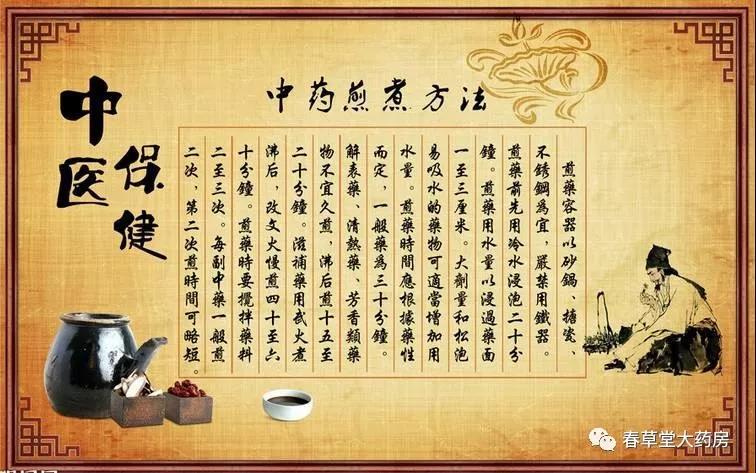 中医
保健
中药煎煮方法
煎藥容器以砂鍋、搪瓷、
不銹鋼為宜，嚴禁用鐵器。
煎藥前先用冷水浸泡二十分
鐘。煎藥用水量以浸過藥面
一至三厘米。大劑量和松泡
易吸水的藥物可適當增加用
水量。煎藥時間應根據藥性
而定，一般藥為三十分鐘。
解表藥、清熱藥、芳香類藥
物不宜久煎，沸后煎十五至
二十分鐘。滋補藥用武火煮
沸后，改文火慢煎四十至六
十分鐘。煎藥時要攪拌藥料
二至三次。每副中藥一般煎
二次，第二次煎時間可略短。
春草堂大药房